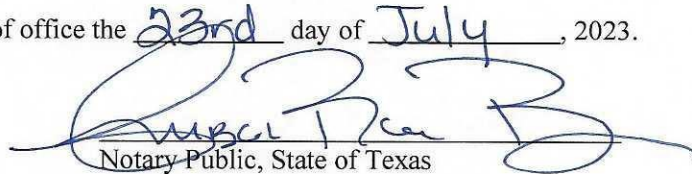 of office the 23rd day of July, 2023.
Notary Public, State of Texas